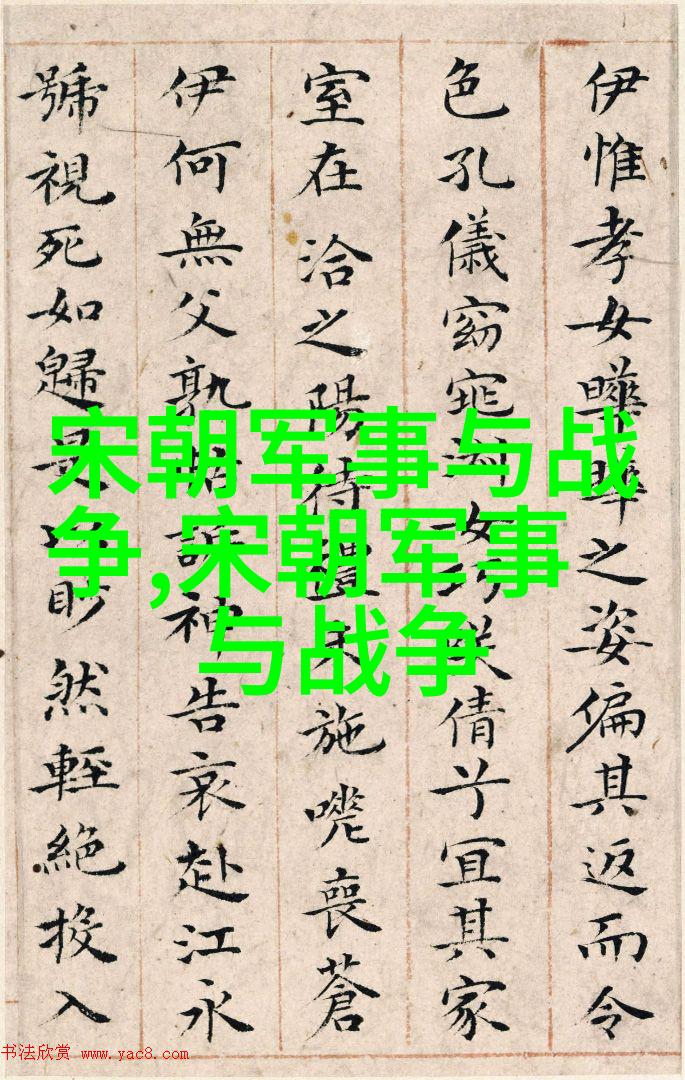 伊惟孝女曄曄之姿偏其返而令
色孔儀窈窕淑女巧咲倩兮宜其家
室在洽之陽待禮未施嗟喪蒼
伊何無父孰怙訴神告哀赴江永
號視死如歸是以眇然輕絕投入
宋朝军事与战
争,宋朝军事
与战争
书法欣赏 www.yac8.com